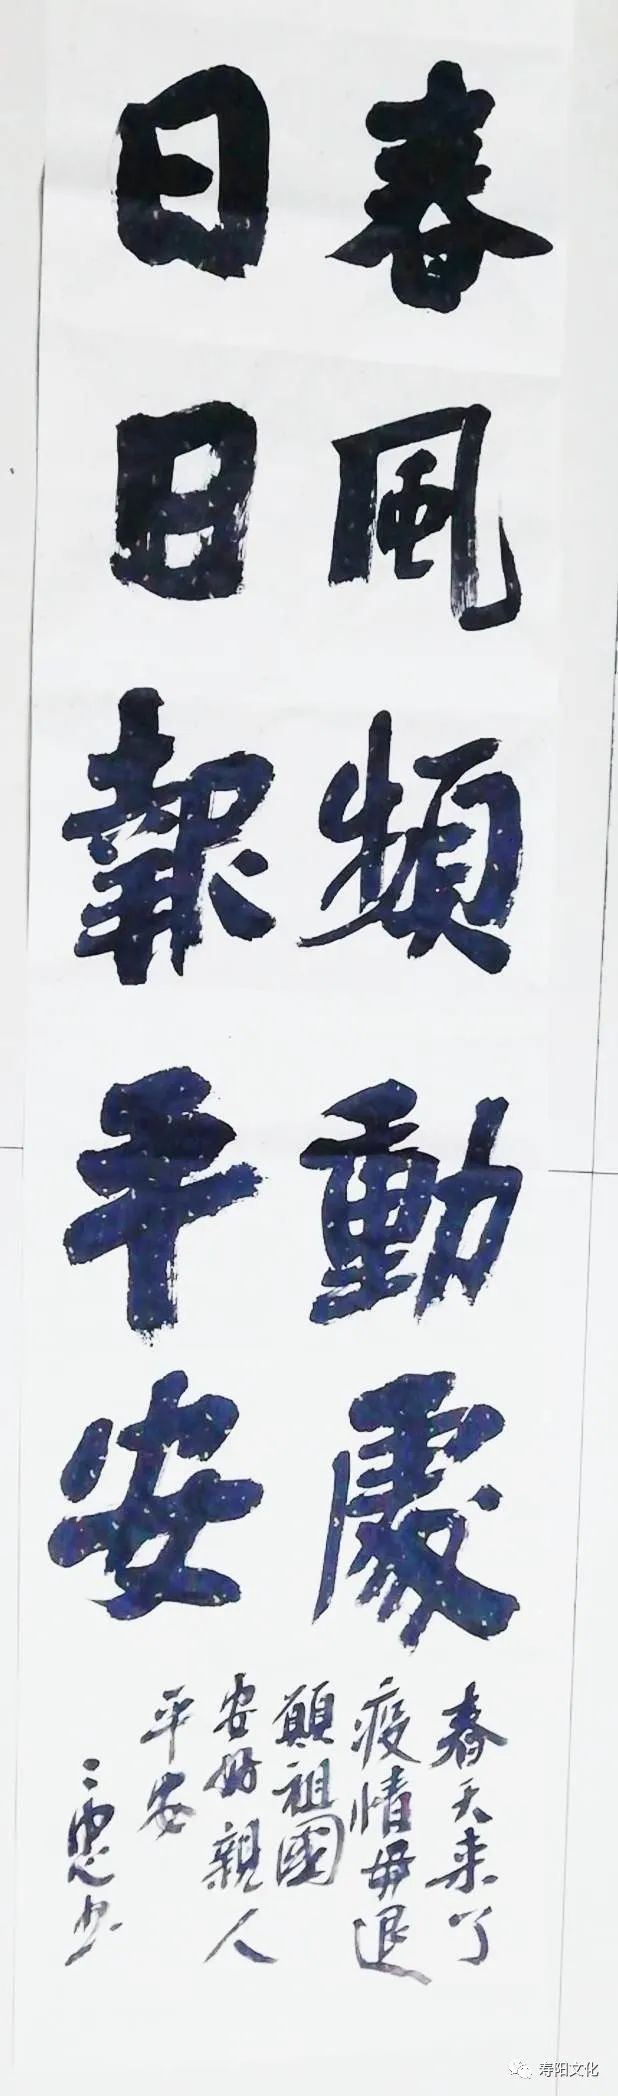 春風頻動處
日日報平安
春天来了
疫情毋退
願祖國
安好親人
平安
寿阳文化